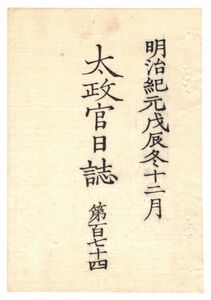 明治紀元戊辰冬十二月
太政官日誌
第百七十四